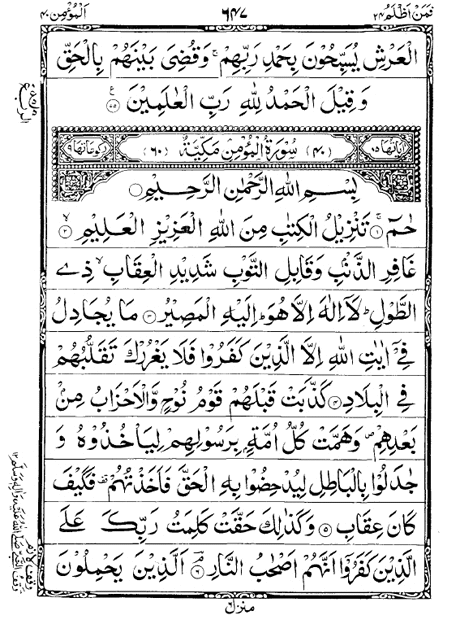 فمن اظلم ٢٤ ٦٤٧ المؤمن ٤٠
الْعَرْشِ يُسَبِّحُوْنَ بِحَمْدِ رَبِّهِمْ ۚ وَقُضِيَ بَيْنَهُمْ بِالْحَقِّ
وَقِيْلَ الْحَمْدُ لِلّٰهِ رَبِّ الْعٰلَمِيْنَ ۝٧٥
اٰیاتها ٨٥ (٤٠) سُوْرَةُ الْمُؤْمِنِ مَكِّيَّةٌ (٦٠) رکوعاتها ٩
بِسْمِ اللّٰهِ الرَّحْمٰنِ الرَّحِيْمِ
حٰمٓ ۝١ تَنْزِيْلُ الْكِتٰبِ مِنَ اللّٰهِ الْعَزِيْزِ الْعَلِيْمِ ۝٢
غَافِرِ الذَّنْۢبِ وَقَابِلِ التَّوْبِ شَدِيْدِ الْعِقَابِ ۙ ذِي
الطَّوْلِ ؕ لَاۤ اِلٰهَ اِلَّا هُوَ ؕ اِلَيْهِ الْمَصِيْرُ ۝٣ مَا يُجَادِلُ
فِيْۤ اٰيٰتِ اللّٰهِ اِلَّا الَّذِيْنَ كَفَرُوْا فَلَا يَغْرُرْكَ تَقَلُّبُهُمْ
فِي الْبِلَادِ ۝٤ كَذَّبَتْ قَبْلَهُمْ قَوْمُ نُوْحٍ وَّالْاَحْزَابُ مِنْۢ
بَعْدِهِمْ ۪ وَهَمَّتْ كُلُّ اُمَّةٍۭ بِرَسُوْلِهِمْ لِيَاْخُذُوْهُ وَ
جٰدَلُوْا بِالْبَاطِلِ لِيُدْحِضُوْا بِهِ الْحَقَّ فَاَخَذْتُهُمْ ۫ فَكَيْفَ
كَانَ عِقَابِ ۝٥ وَكَذٰلِكَ حَقَّتْ كَلِمَتُ رَبِّكَ عَلَى
الَّذِيْنَ كَفَرُوْۤا اَنَّهُمْ اَصْحٰبُ النَّارِ ۝٦ اَلَّذِيْنَ يَحْمِلُوْنَ
منزل